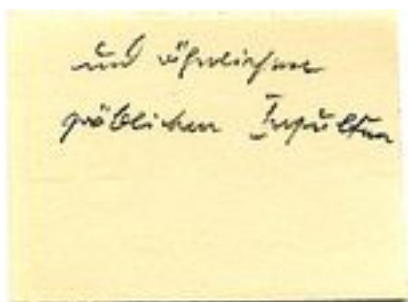 und ähnlichen
pöblichen Insulten